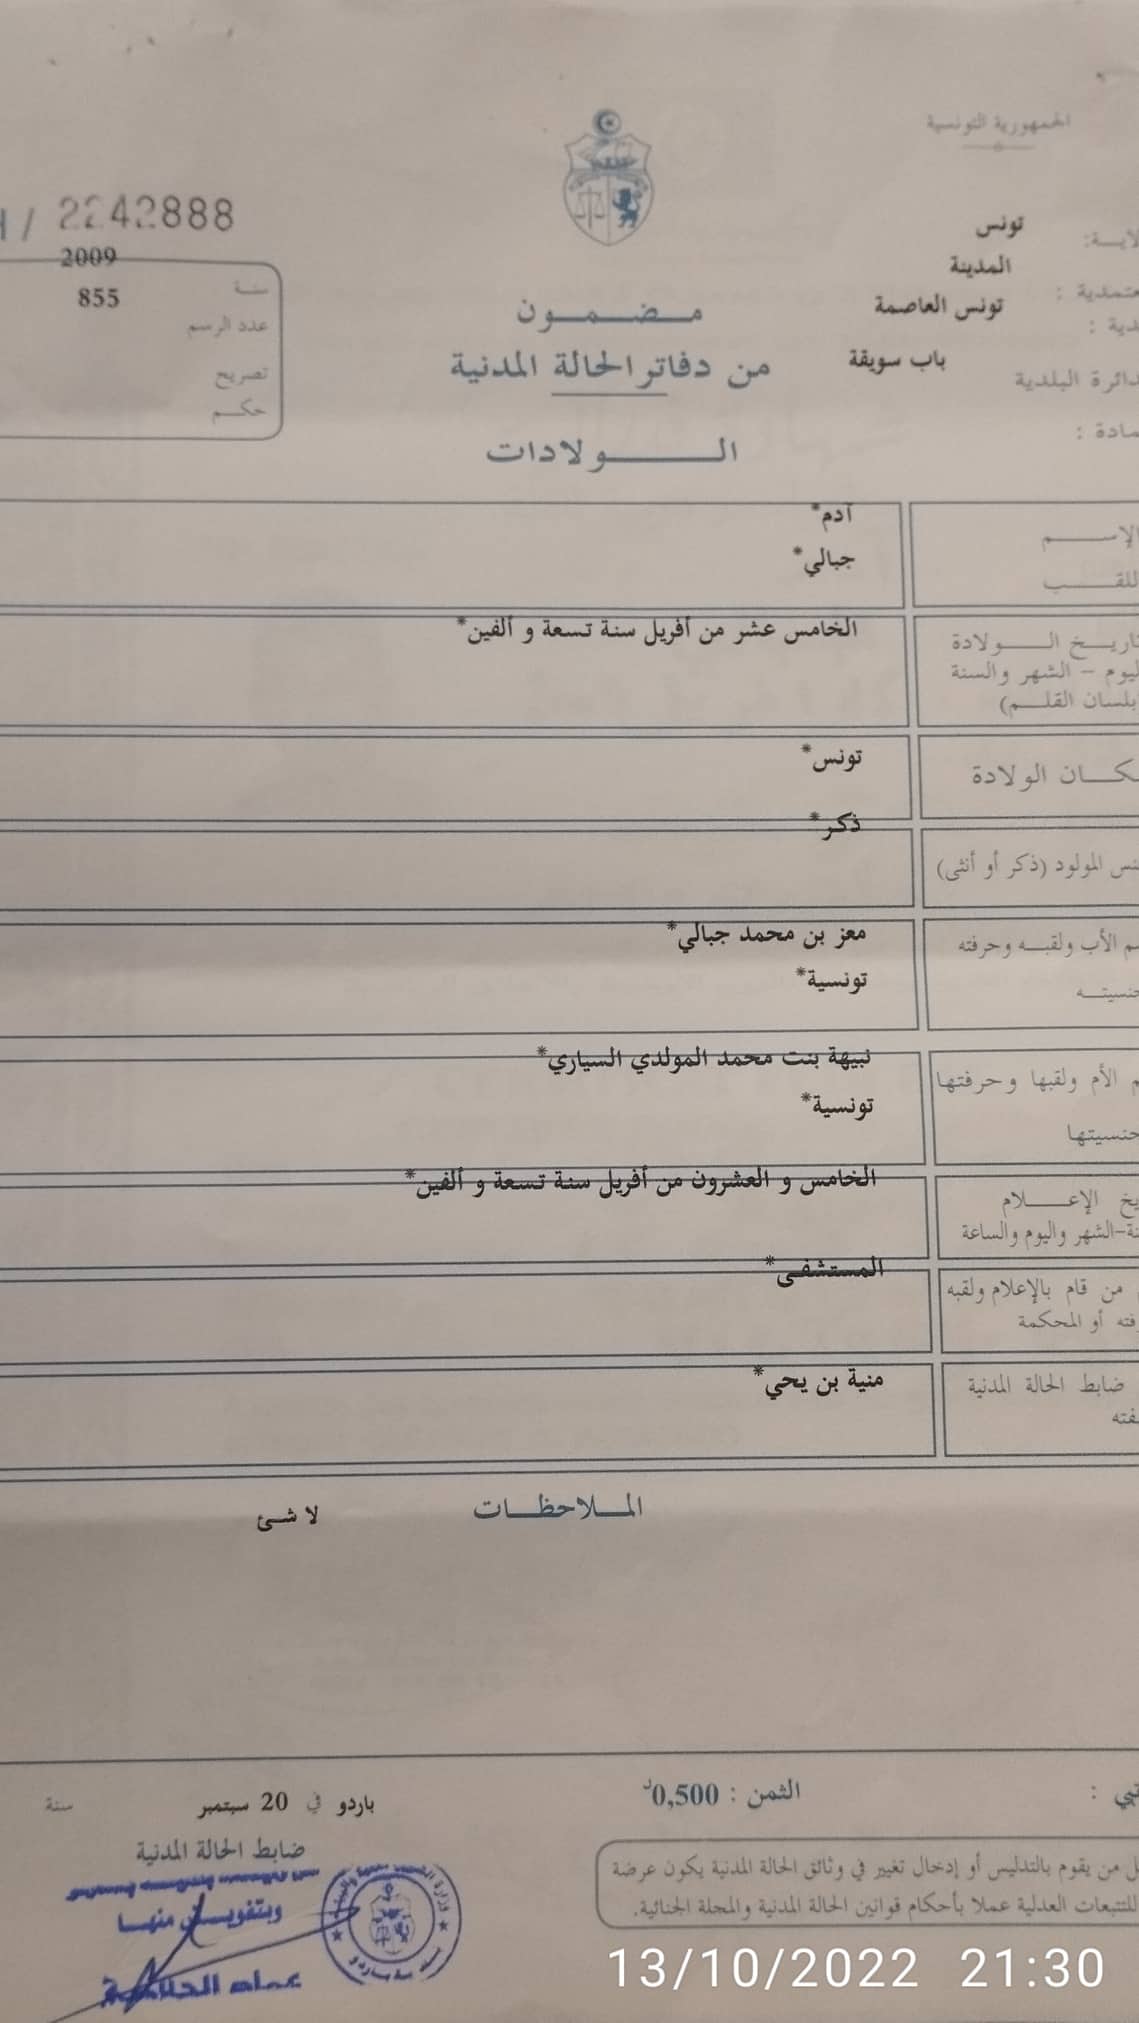 الجمهورية التونسية
/ 2242888
تونس
المدينة
تونس العاصمة
دائرة البلدية باب سويقة
2009
سنة
855
عدد الرسم
تصريح
حكم
مضمون
من دفاتر الحالة المدنية
الولادات
آدم*
جبالي*
الولادة الخامس عشر من أفريل سنة تسعة و ألفين*
– الشهر والسنة
بلسان القلم)
الولادة تونس*
المولود (ذكر أو أنثى) ذكر*
الأب ولقبه وحرفته معز بن محمد جبالي*
تونسية*
الأم ولقبها وحرفتها نبيهة بنت محمد المولدي السياري*
تونسية*
الإعلام الخامس و العشرون من أفريل سنة تسعة و ألفين*
–الشهر واليوم والساعة
من قام بالإعلام ولقبه المستشفى*
أو المحكمة
ضابط الحالة المدنية منية بن يحي*
الملاحظات
لا شئ
الثمن : 0,500د
باردو في 20 سبتمبر سنة
ضابط الحالة المدنية
وبتفويض منها
من يقوم بالتدليس أو إدخال تغيير في وثائق الحالة المدنية يكون عرضة
للتتبعات العدلية عملا بأحكام قوانين الحالة المدنية والمجلة الجنائية.
13/10/2022 21:30